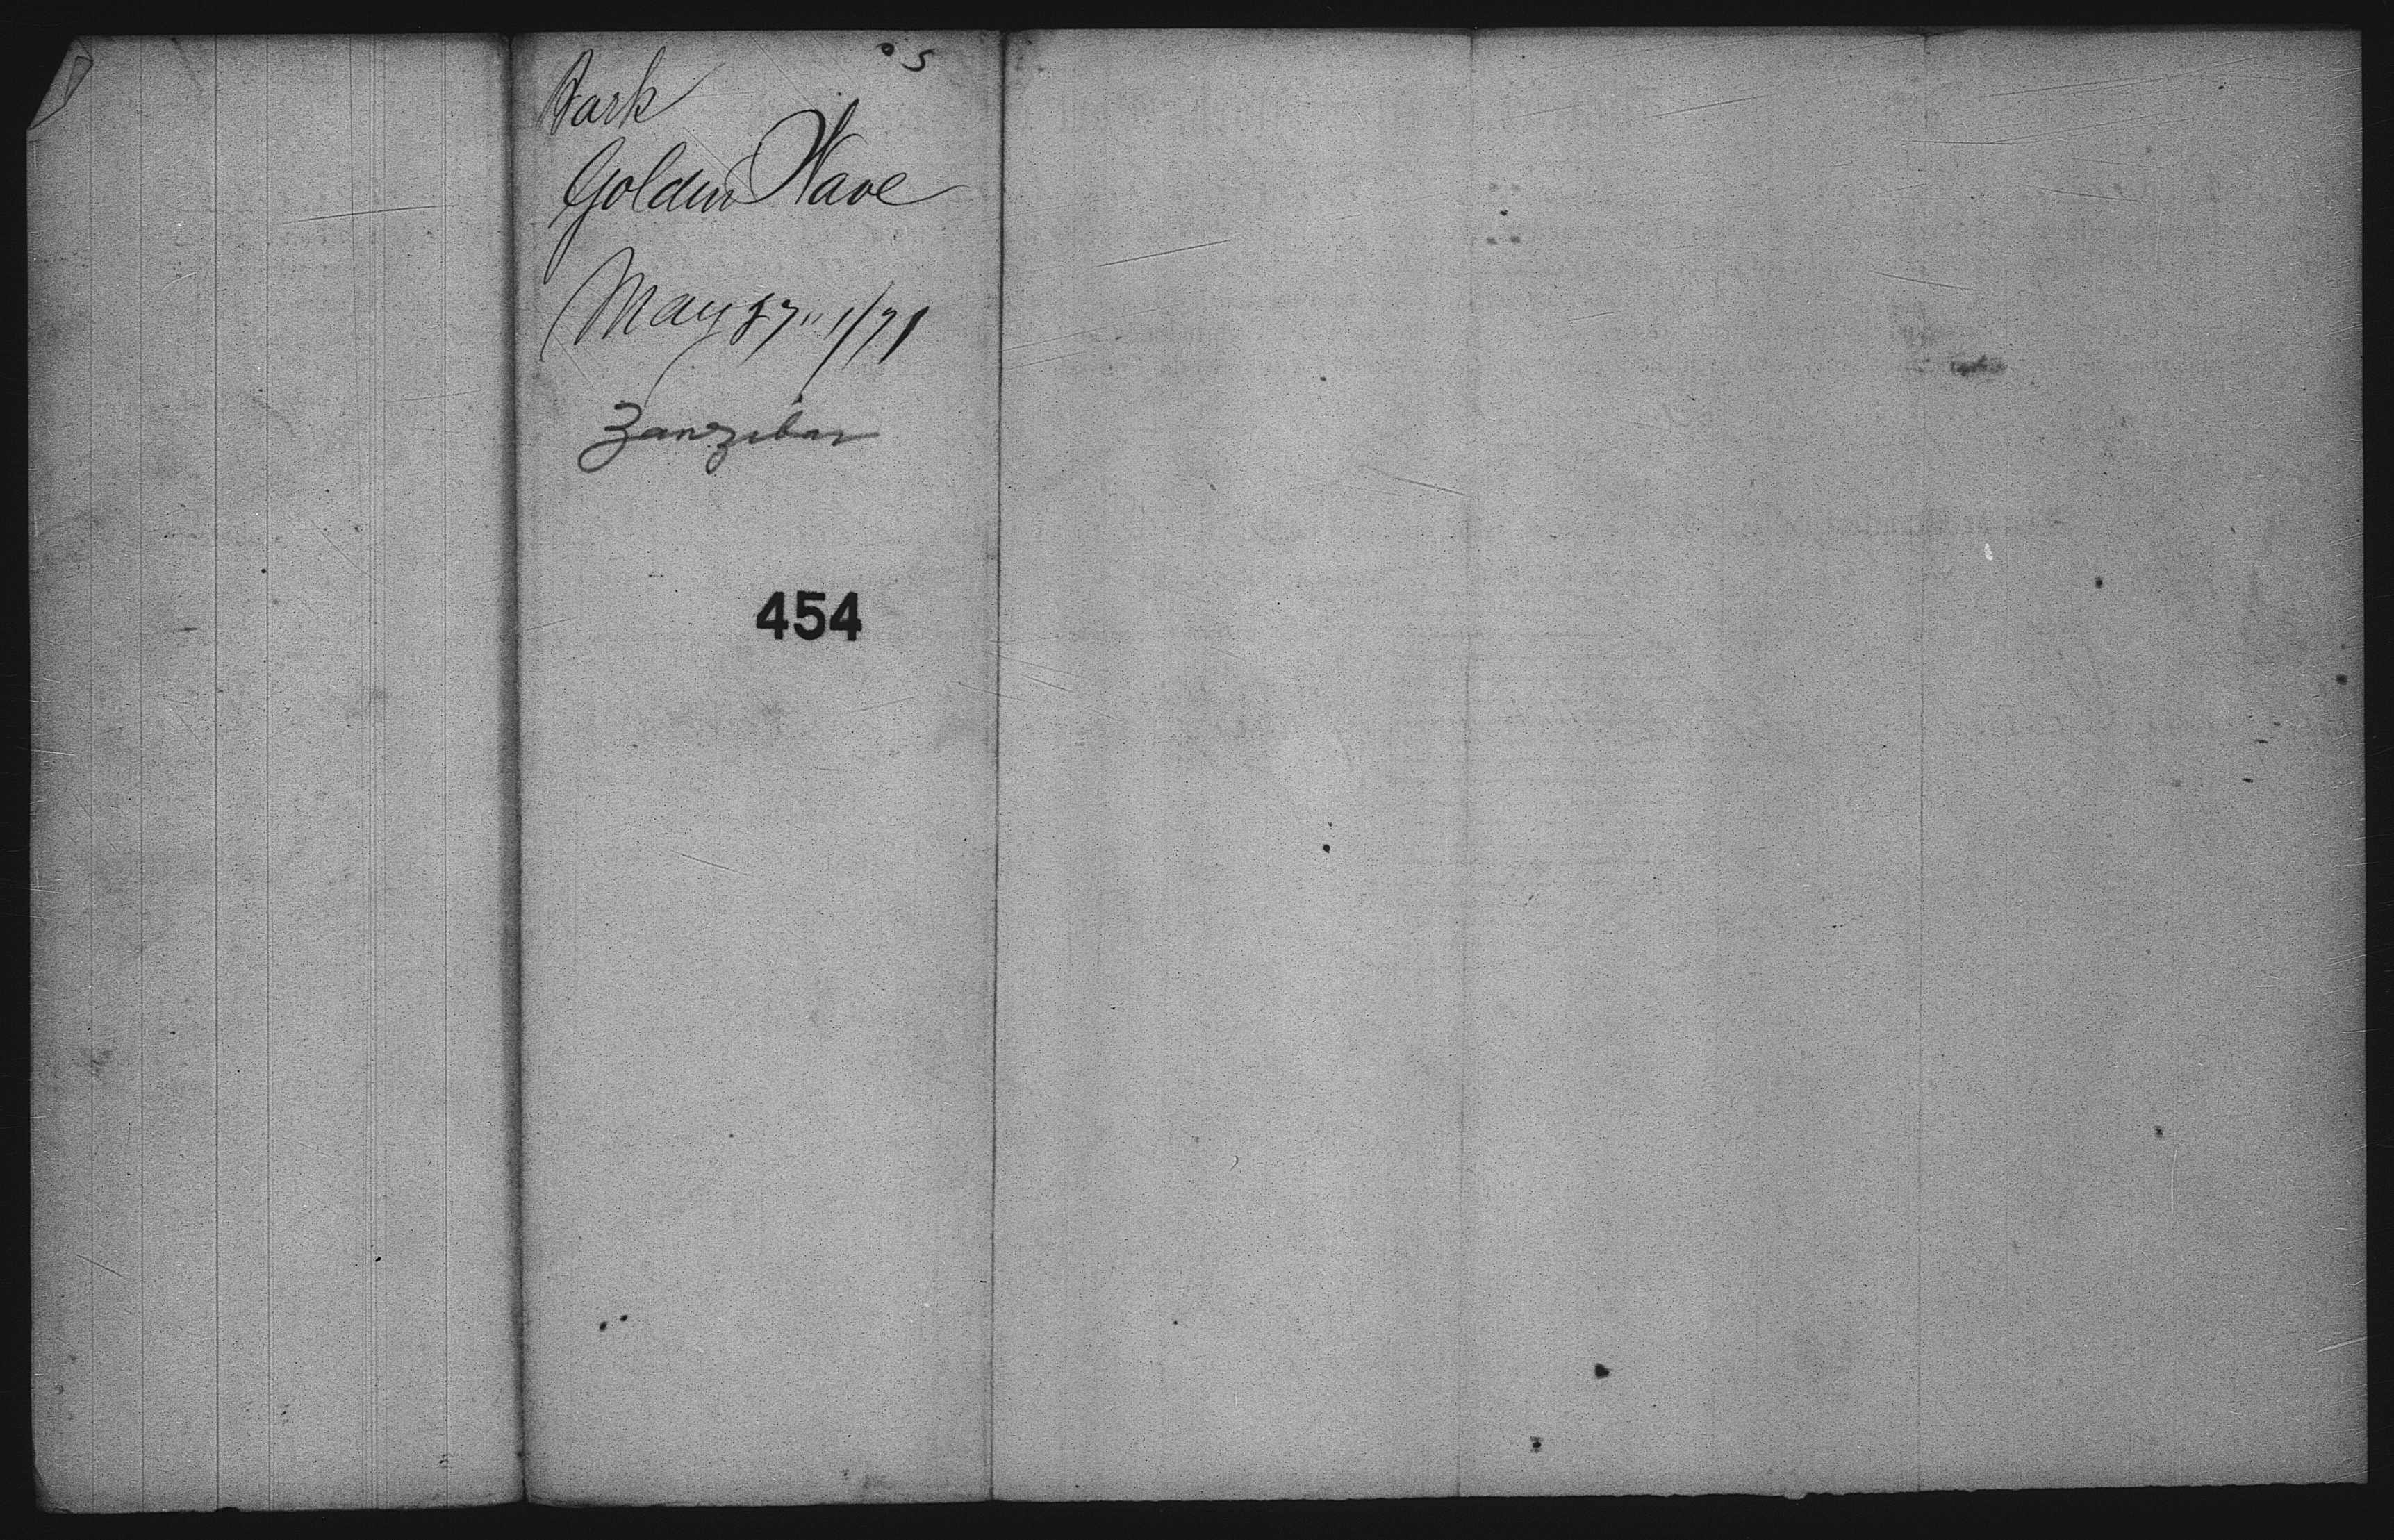 Bark
Golden Wave
May 27" 1/71
Zanzibar
454